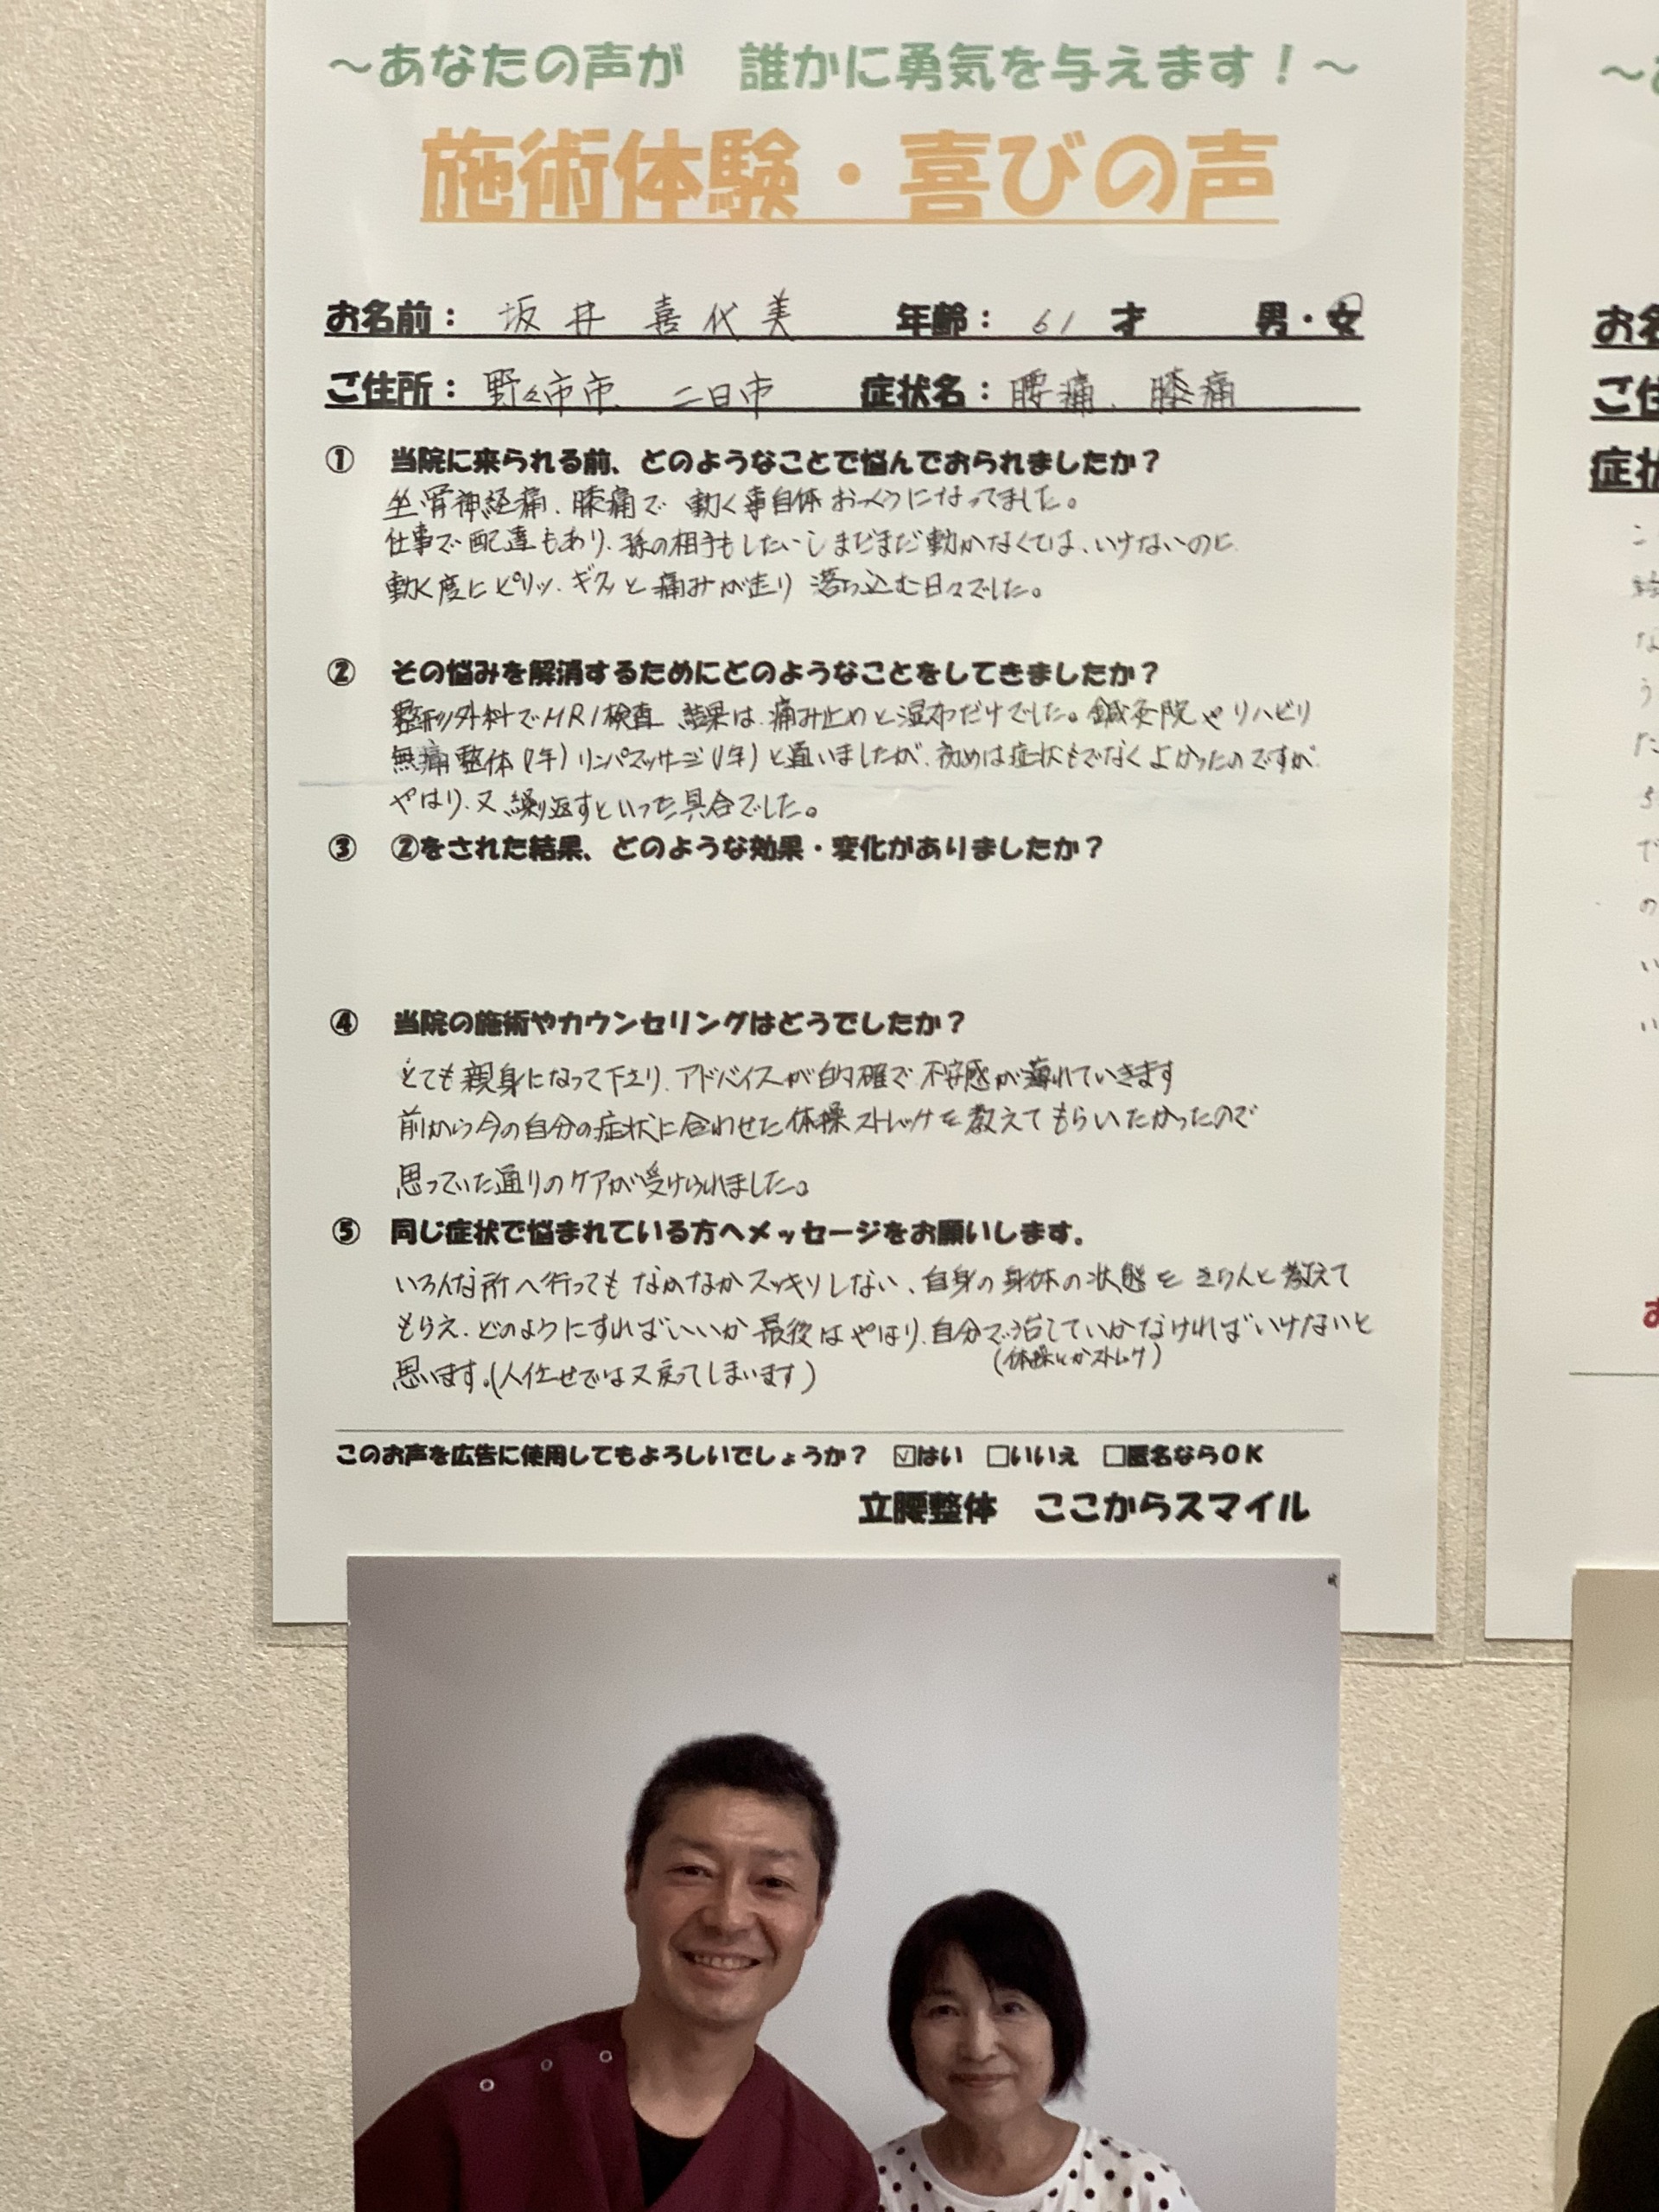 ～あなたの声が　誰かに勇気を与えます！～
施術体験・喜びの声
お名前： 坂井 喜代美 年齢： 61 才 男・女
ご住所： 野々市市 二日市 症状名： 腰痛、膝痛
① 当院に来られる前、どのようなことで悩んでおられましたか？
坐骨神経痛、膝痛で 動く事自体 おっくうになってました。
仕事で配達もあり、孫の相手もしたいしまだまだ動かなくては、いけないのに
動く度にピリッ、ギクッと痛みが走り 落ち込む日々でした。
② その悩みを解消するためにどのようなことをしてきましたか？
整形外科でMRI検査 結果は、痛み止めと湿布だけでした。鍼灸院やリハビリ
無痛整体(2年)リンパマッサージ(1年)と通いましたが、初めは症状もでなくよかったのですが
やはり、又、繰り返すといった具合でした。
③ ②をされた結果、どのような効果・変化がありましたか？
④ 当院の施術やカウンセリングはどうでしたか？
とても親身になって下さり、アドバイスが的確で 不安感が薄れていきます
前から今の自分の症状に合わせた体操ストレッチを教えてもらいたかったので
思っていた通りのケアが受けられました。
⑤ 同じ症状で悩まれている方へメッセージをお願いします。
いろんな所へ行ってもなかなかスッキリしない、自身の身体の状態をきちんと教えて
もらえ、どのようにすればいいか最後はやはり、自分で治していかなければいけないと
(体操とかストレッチ)
思います。(人任せでは又戻ってしまいます)
このお声を広告に使用してもよろしいでしょうか？ ☑はい □いいえ □匿名ならOK
立腰整体　ここからスマイル